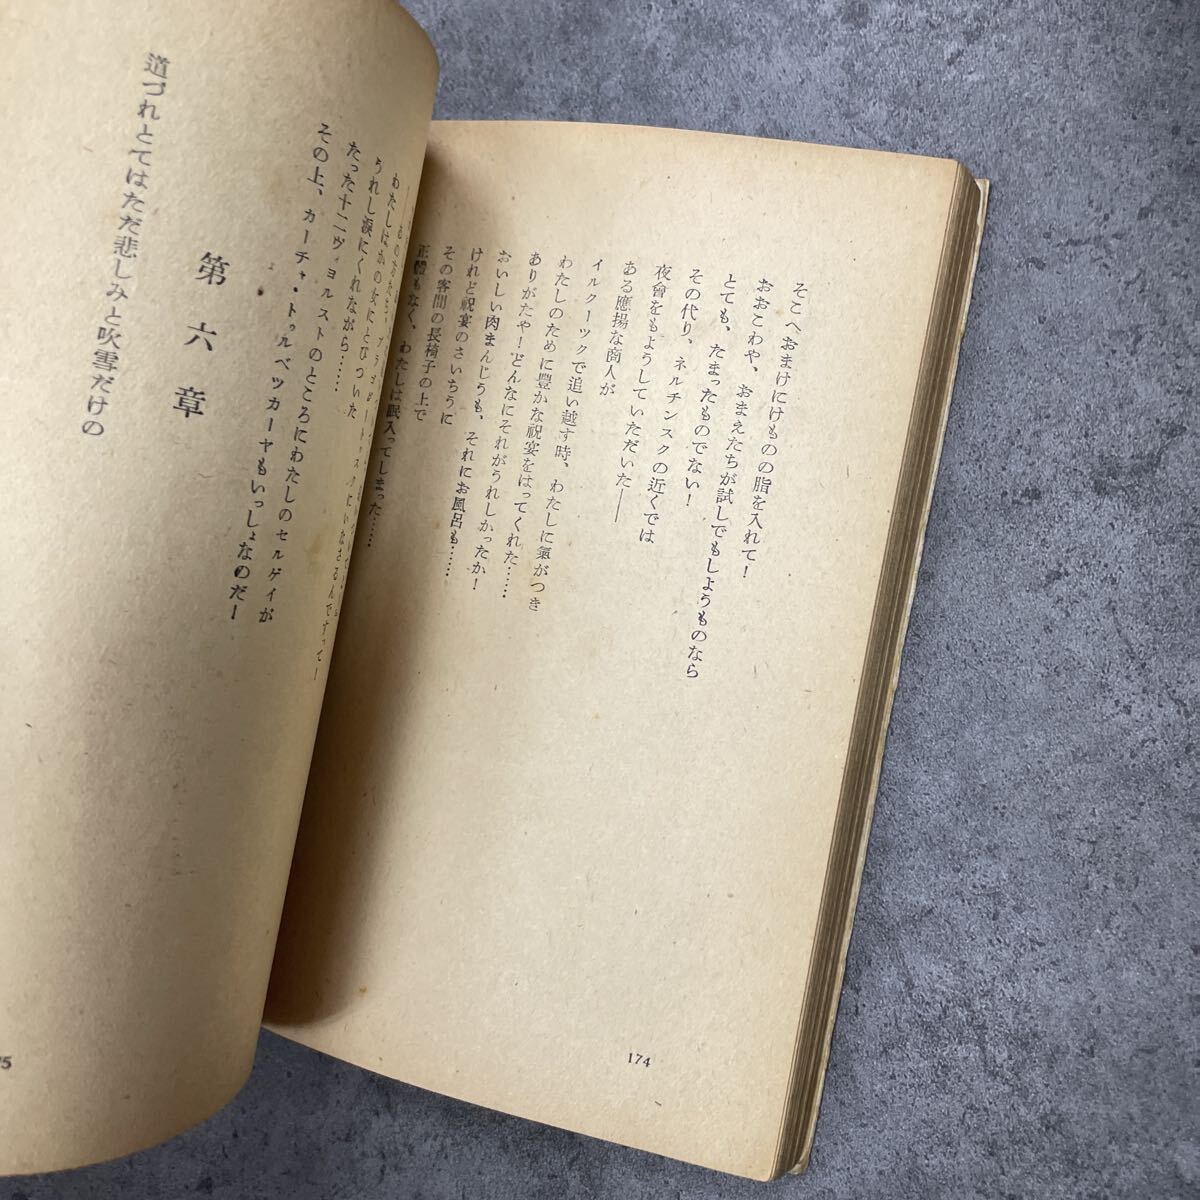 そこへおまけにけものの脂を入れて！
おおこわや、おまえたちが試しでもしようものなら
とても、たまったものでない！
その代り、ネルチンスクの近くでは
夜會をもようしていただいた――
ある應揚な商人が
イルクーツクで追い越す時、わたしに氣がつき
わたしのために豊かな祝宴をはってくれた……
ありがたや！どんなにそれがうれしかったか！
おいしい肉まんじうも、それにお風呂も……
けれど祝宴のさいちうに
その客間の長椅子の上で
正體もなく、わたしは眠入ってしまった……
174
わたしはかの女にとびついた
うれし涙にくれながら……
たった十二ヴィョルストのところにわたしのセルゲイが
その上、カーチャ・トゥルベツカーヤもいっしょなのだ！
第六章
道づれとてはただ悲しみと吹雪だけの